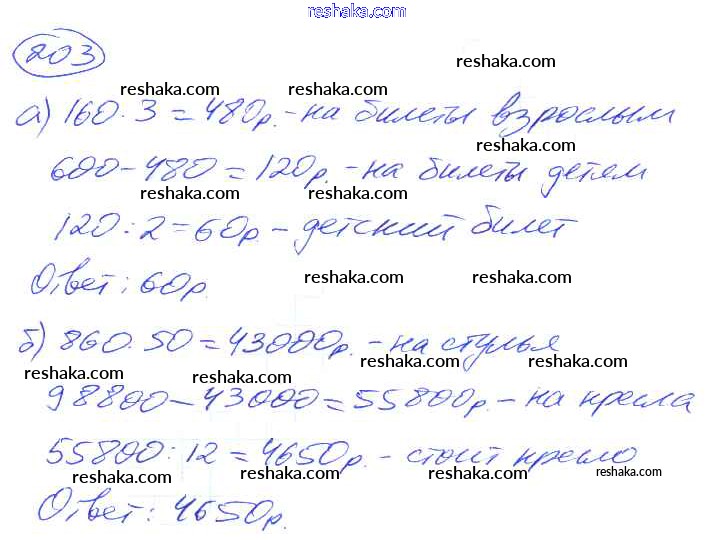 reshaka.com
203
reshaka.com
reshaka.com reshaka.com
а) 160·3=480р.-на билеты взрослым
reshaka.com
600-480=120р.-на билеты детям
reshaka.com reshaka.com
120:2=60р.-детский билет
reshaka.com reshaka.com
Ответ: 60р.
б) 860·50=43000р.-на стулья
reshaka.com reshaka.com
reshaka.com reshaka.com
98800-43000=55800р.-на кресла
55800:12=4650р.-стоит кресло
reshaka.com reshaka.com reshaka.com
Ответ: 4650р.